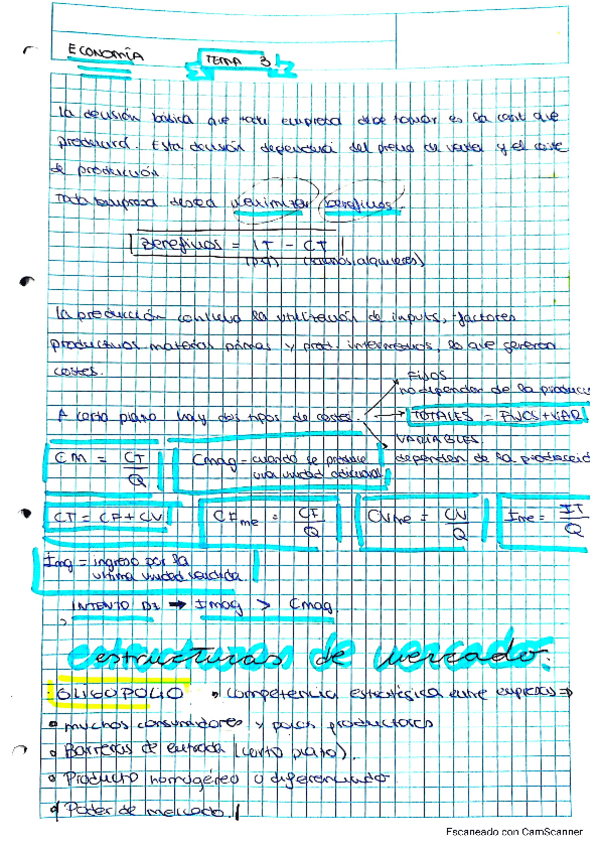 ECONOMÍA
TEMA 3
La decisión básica que toda empresa debe tomar es la cant que
producirá. Esta decisión dependerá del precio de venta y el coste
de producción
Toda empresa desea maximizar beneficios.
Beneficios = IT - CT
(P·Q) (salarios, alquileres)
La producción conlleva la utilización de inputs, factores
productivos materias primas y prod. intermedios, lo que generan
costes.
FIJOS
no dependen de la producc
A corto plazo hay dos tipos de costes.
TOTALES = FIJOS + VAR
VARIABLES
dependen de la producció
CM = CT/Q
Cmag = cuando se produce
una unidad adicional
CT = CF + CV
CFme = CF/Q
CVme = CV/Q
Ime = IT/Q
Img = ingreso por la
última unidad vendida
INTENTO DE → Imag > Cmag
estructuras de mercado:
OLIGOPOLIO • competencia estratégica entre empresas ⇒
• muchos consumidores y pocos productores
• Barreras de entrada (corto plazo).
• Producto homogéneo o diferenciado.
• Poder de mercado
Escaneado con CamScanner